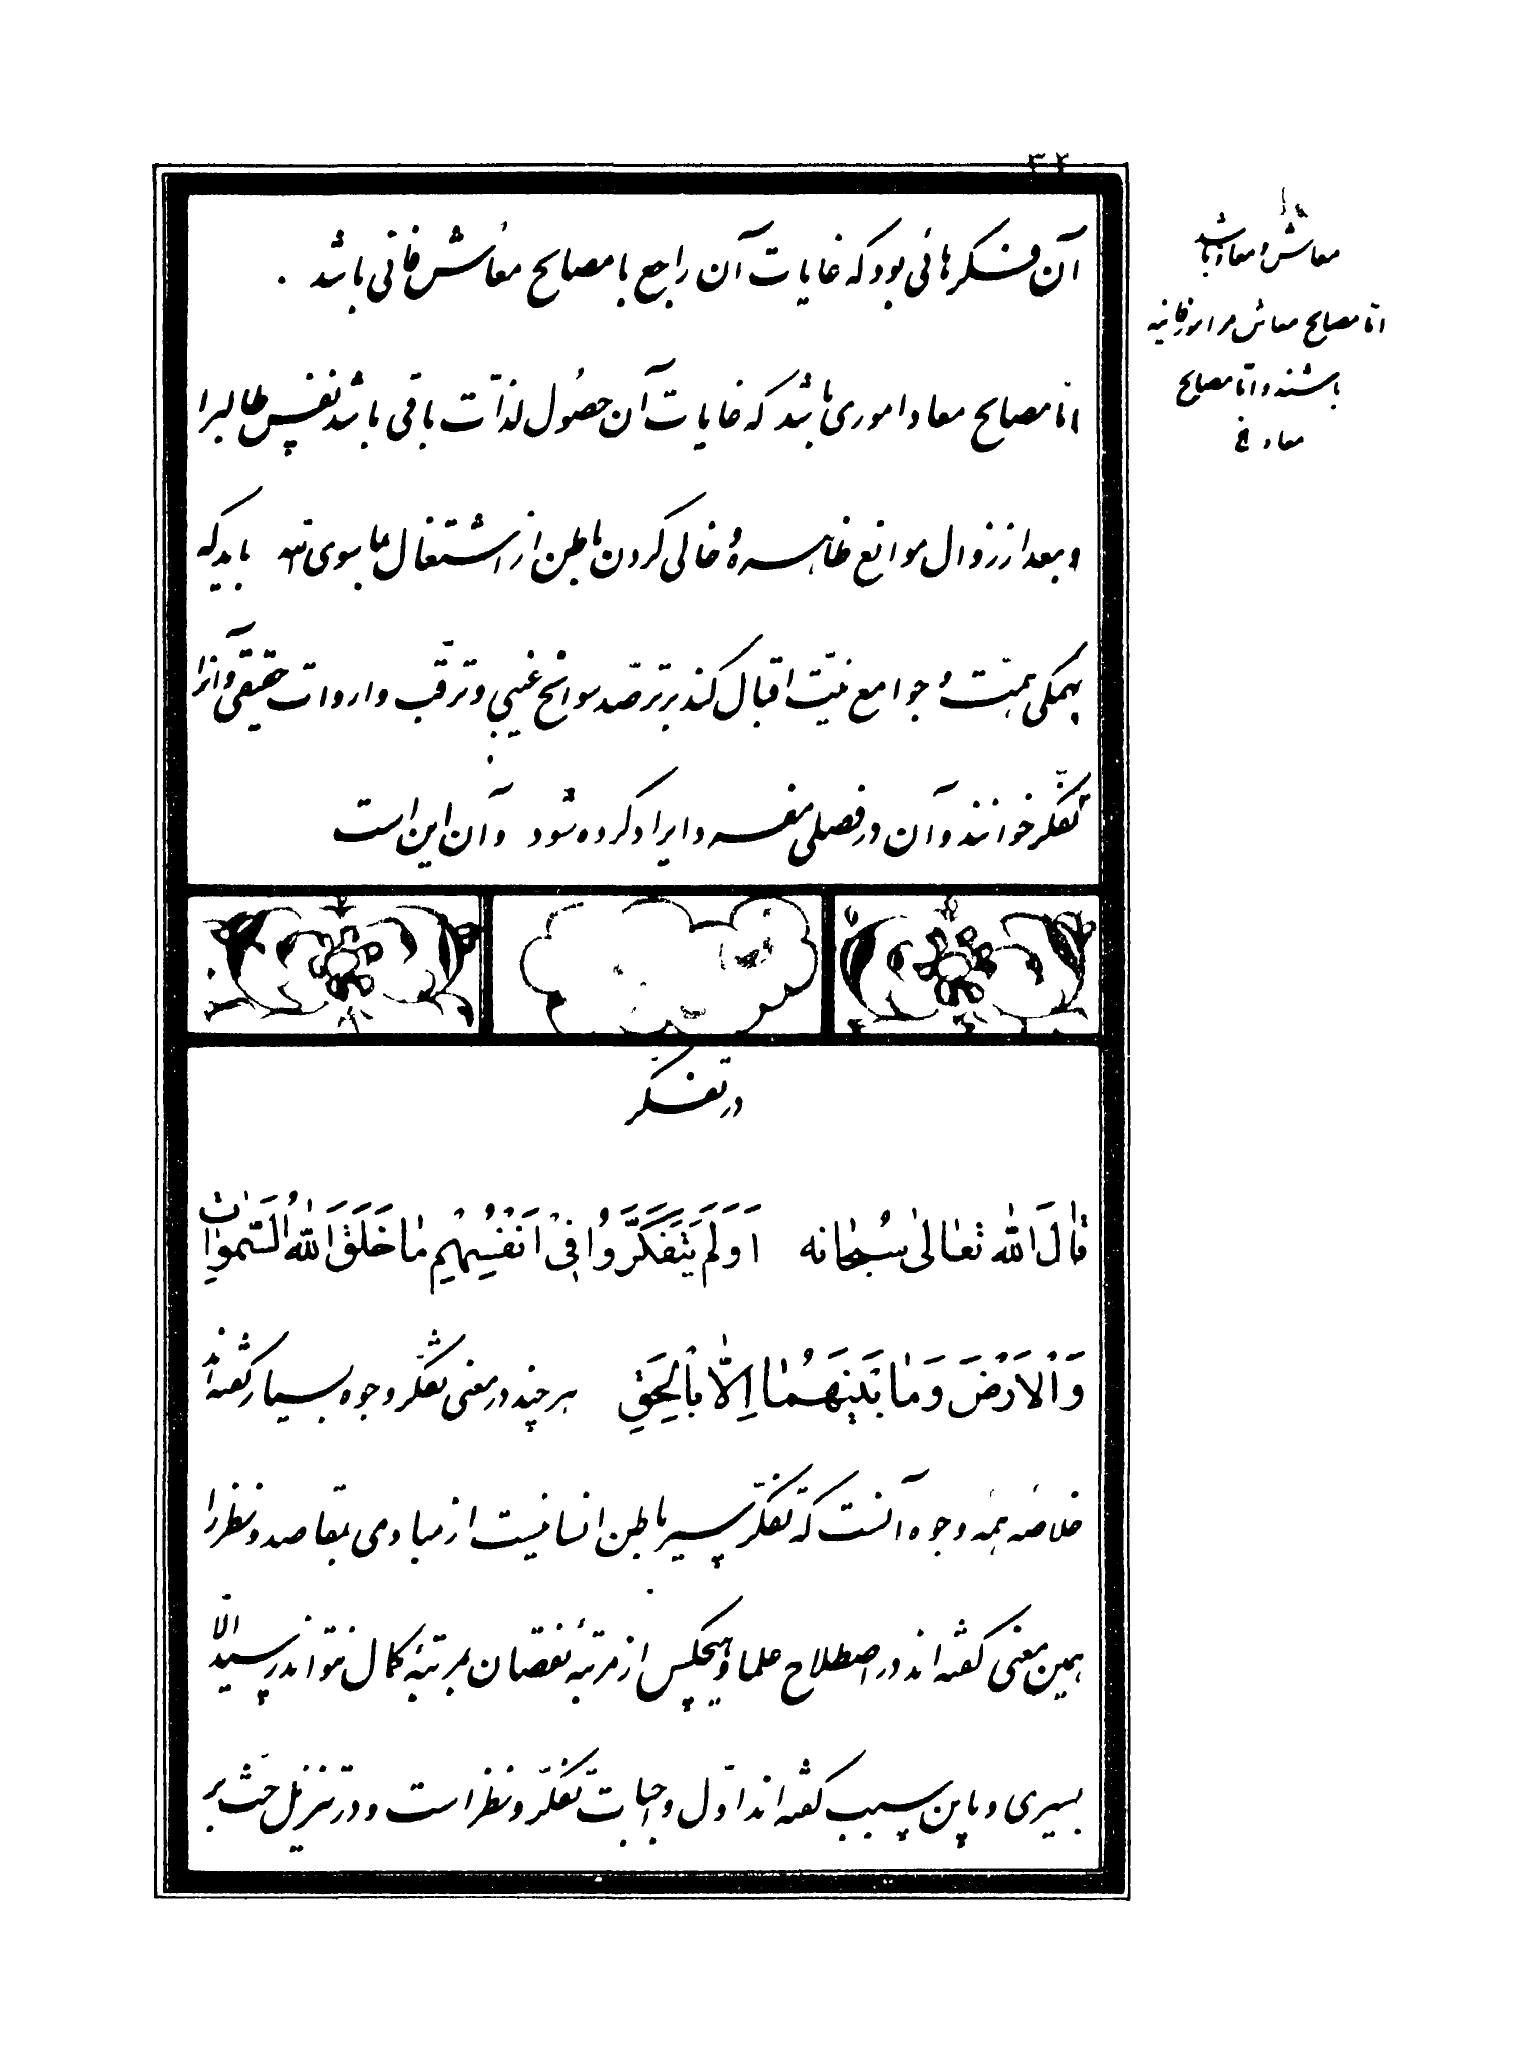 ۳۲
آن فکرهائی بود که غایات آن راجع با مصالح معاش فانی باشد .
امّا مصالح معاد اموری باشد که غایات آن حصول لذّات باقی باشد نفس طالب را
و بعد از زوال موانع ظاهره و خالی کردن باطن از اشتغال بما سوی الله باید که
بهمگی همّت و جوامع نیّت اقبال کند بر ترصّد سوانح غیبی و ترقّب واردات حقیقی و آنرا
تفکّر خوانند و آن در فصلی مفرد ایراد کرده شود و آن این است
در تفکر
قٰالَ اللّٰه تعٰالیٰ سُبحٰانه اَوَلَمْ یَتَفَکَّرُوا فِیْ اَنْفُسِهِمْ مٰا خَلَقَ اللّٰهُ السَّمٰوٰاتِ
وَالْاَرْضَ وَمٰا بَیْنَهُمٰا اِلّٰا بِالْحَقِّ هر چند در معنی تفکّر وجوه بسیار گفته‌اند
خلاصهٔ همهٔ وجوه آنست که تفکّر سیر باطن انسانیست از مبادی بمقاصد و نظر را
همین معنی گفته‌اند در اصطلاح علما و هیچکس از مرتبهٔ نقصان بمرتبهٔ کمال نتواند رسید الّا
بسیری و باین سبب گفته‌اند اوّل واجبات تفکّر و نظر است و در تنزیل حثّ بر
معاش و معاد باشد
امّا مصالح معاش در امور فانیه
باشند و امّا مصالح
معاد خ